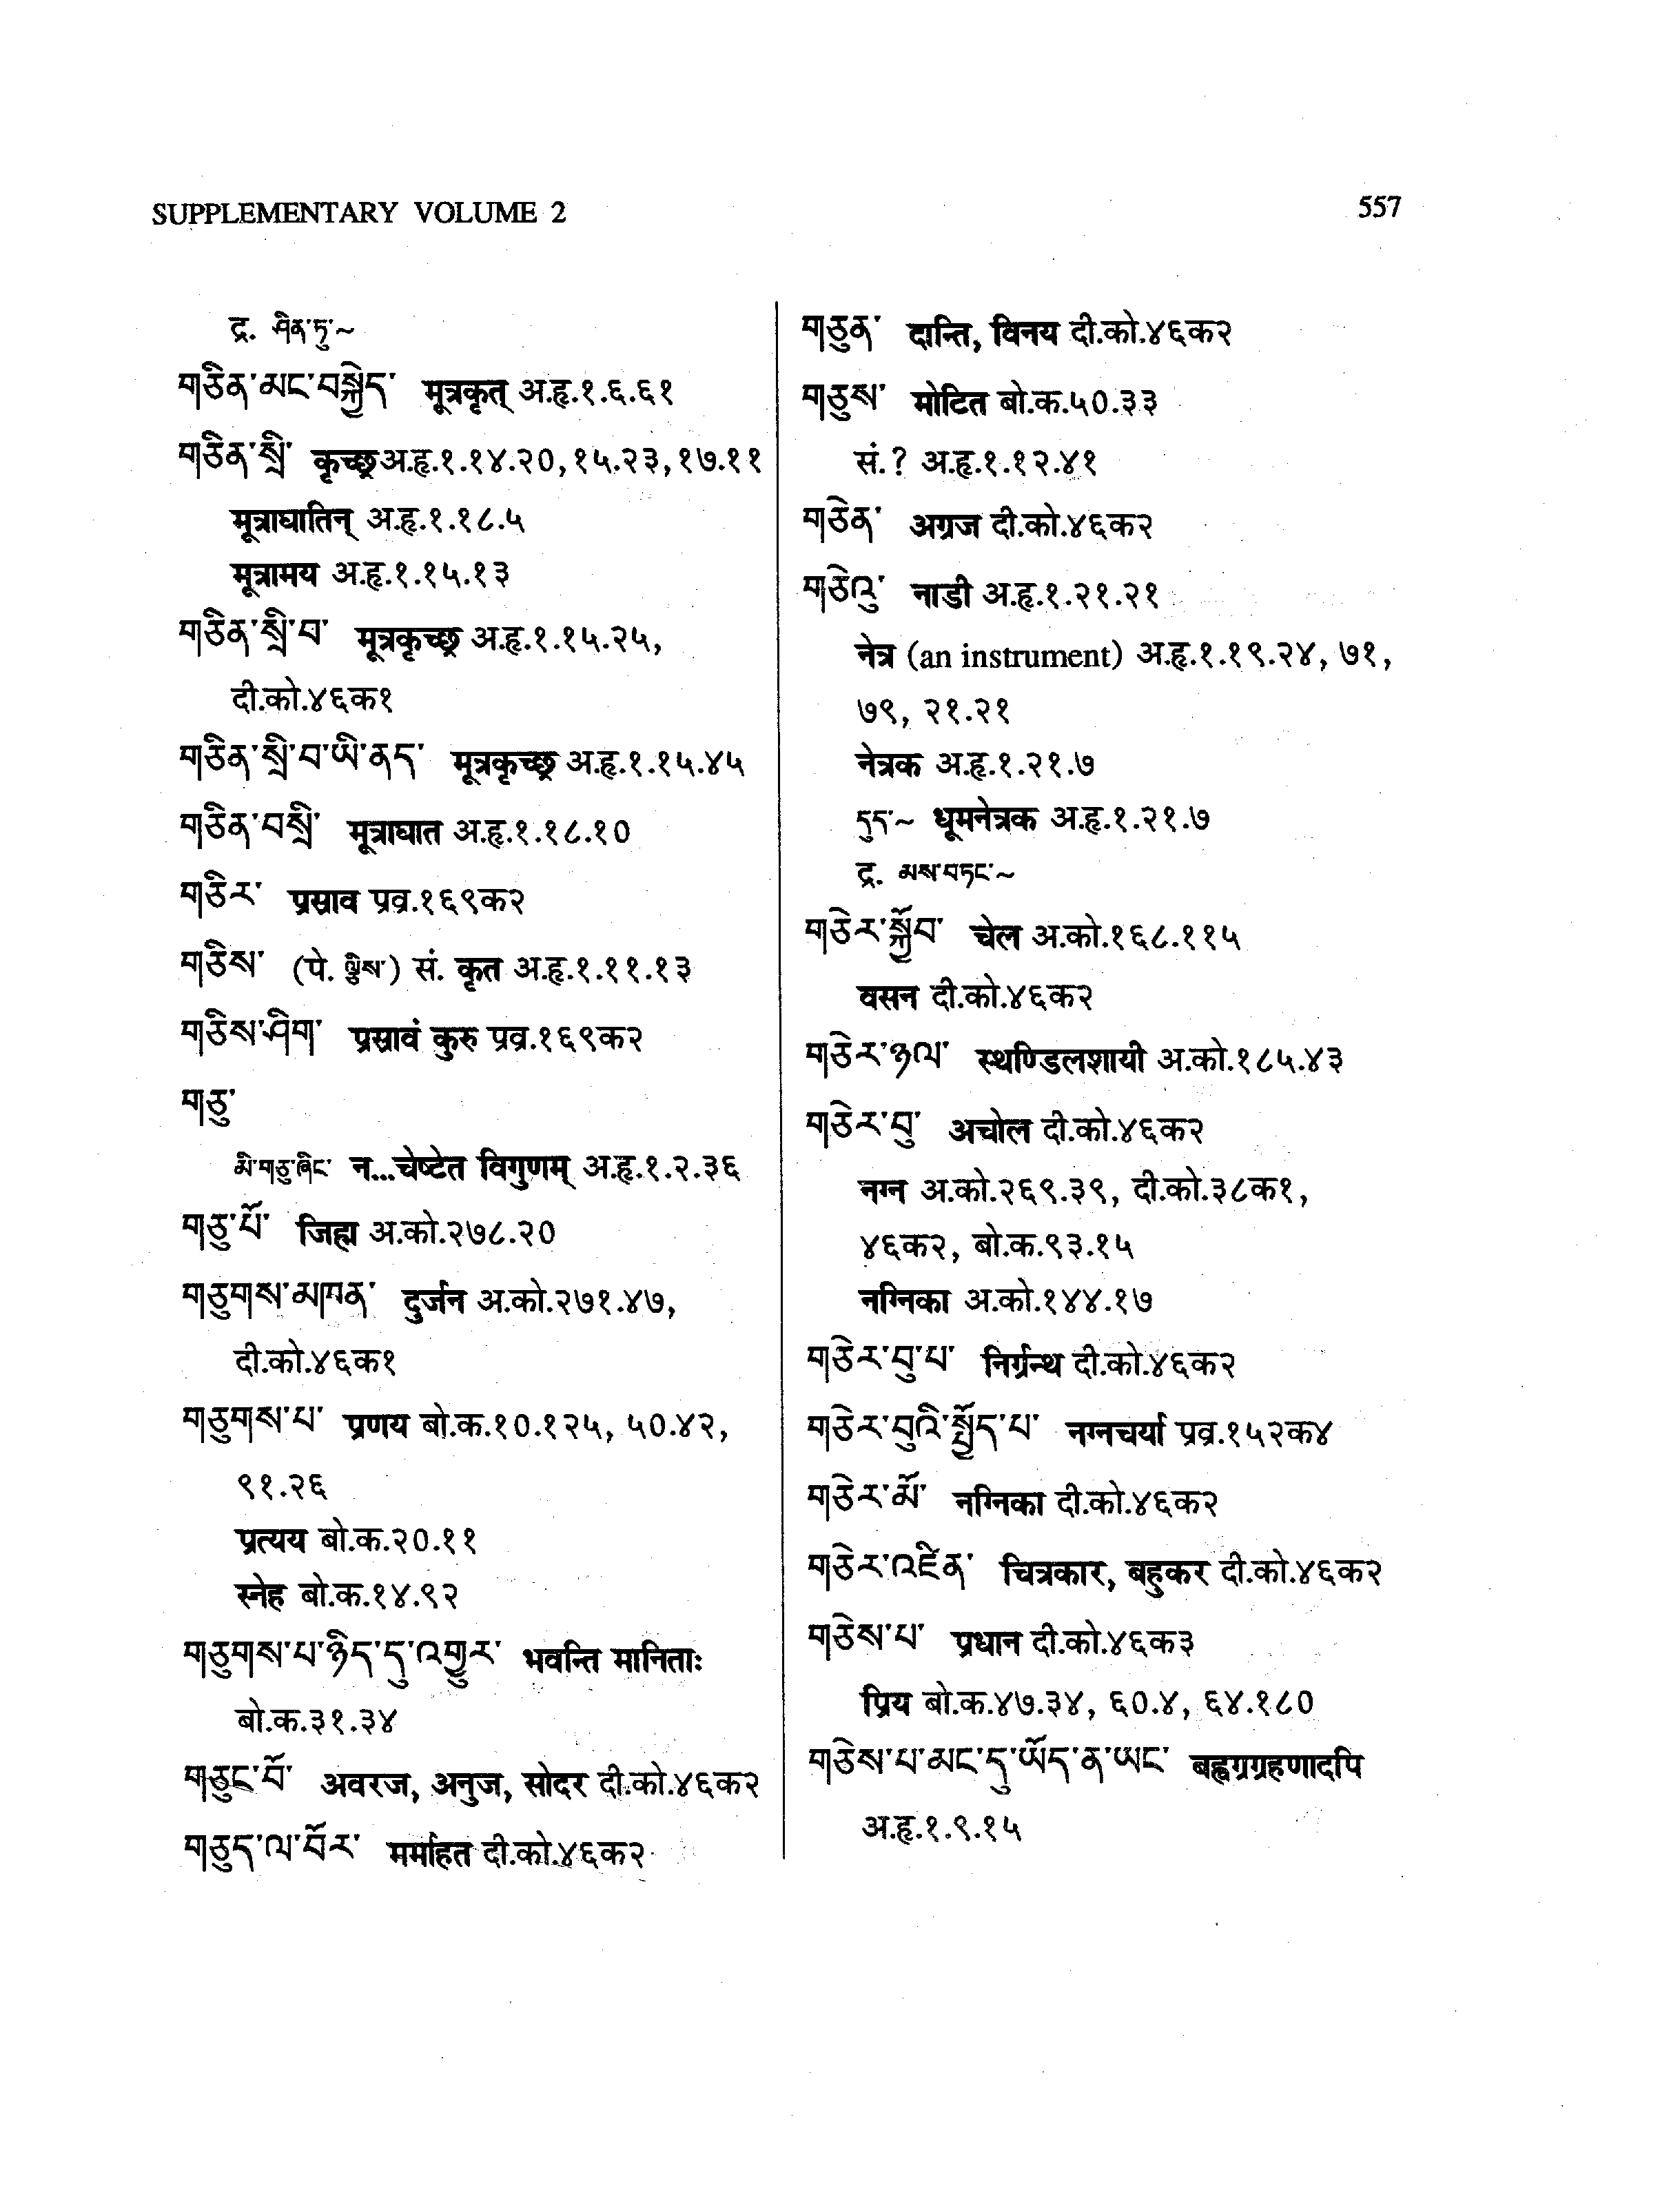 SUPPLEMENTARY VOLUME 2
557
द्र. ཤིན་ཏུ་~
གཅིན་མང་བསྐྱེད་ मूत्रकृत् अ.हृ.१.६.६१
གཅིན་སྲི་ कृच्छ्र अ.हृ.१.१४.२०,१५.२३,१७.११
मूत्राघातिन् अ.हृ.१.१८.५
मूत्रामय अ.हृ.१.१५.१३
གཅིན་སྲི་བ་ मूत्रकृच्छ्र अ.हृ.१.१५.२५,
दी.को.४६क१
གཅིན་སྲི་བ་ཡི་ནད་ मूत्रकृच्छ्र अ.हृ.१.१५.४५
གཅིན་བསྲི་ मूत्राघात अ.हृ.१.१८.१०
གཅིར་ प्रस्राव प्रव्र.१६९क२
གཅིས་ (पे. ) सं. कृत अ.हृ.१.११.१३
གཅིས་ཤིག་ प्रस्रावं कुरु प्रव्र.१६९क२
གཅུ་
མི་གཅུ་ཞིང་ न...चेष्टेत विगुणम् अ.हृ.१.२.३६
གཅུ་པོ་ जिह्म अ.को.२७८.२०
གཅུགས་མཁན་ दुर्जन अ.को.२७१.४७,
दी.को.४६क१
གཅུགས་པ་ प्रणय बो.क.१०.१२५, ५०.४२,
९१.२६
प्रत्यय बो.क.२०.११
स्नेह बो.क.१४.९२
གཅུགས་པ་ཉིད་དུ་འགྱུར་ भवन्ति मानिताः
बो.क.३१.३४
གཅུང་བོ་ अवरज, अनुज, सोदर दी.को.४६क२
གཅུད་ལ་བོར་ मर्माहत दी.को.४६क२
གཅུན་ दान्ति, विनय दी.को.४६क२
གཅུས་ मोटित बो.क.५०.३३
सं.? अ.हृ.१.१२.४१
གཅེན་ अग्रज दी.को.४६क२
གཅེའུ་ नाडी अ.हृ.१.२१.२१
नेत्र (an instrument) अ.हृ.१.१९.२४, ७१,
७९, २१.२१
नेत्रक अ.हृ.१.२१.७
དུད་~ धूमनेत्रक अ.हृ.१.२१.७
द्र. མས་བཏང་~
གཅེར་སྐྱོབ་ चेल अ.को.१६८.११५
वसन दी.को.४६क२
གཅེར་ཉལ་ स्थण्डिलशायी अ.को.१८५.४३
གཅེར་བུ་ अचोल दी.को.४६क२
नग्न अ.को.२६९.३९, दी.को.३८क१,
४६क२, बो.क.९३.१५
नग्निका अ.को.१४४.१७
གཅེར་བུ་པ་ निर्ग्रन्थ दी.को.४६क२
གཅེར་བུའི་སྤྱོད་པ་ नग्नचर्या प्रव्र.१५२क४
གཅེར་མོ་ नग्निका दी.को.४६क२
གཅེར་འཛིན་ चित्रकार, बहुकर दी.को.४६क२
གཅེས་པ་ प्रधान दी.को.४६क३
प्रिय बो.क.४७.३४, ६०.४, ६४.१८०
གཅེས་པ་མང་དུ་ཡོད་ན་ཡང་ बह्वग्रग्रहणादपि
अ.हृ.१.९.१५